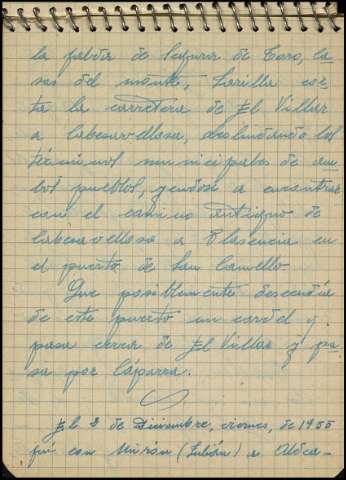 la falda de Segura de Toro, ca-
sas del monte, Zarilla cor-
ta la carretera de El Villar
a Cabezavellosa, deslindando los
términos municipales de am-
bos pueblos, yendose a encontrar
con el camino antiguo de
Cabezavellosa a Plasencia en
el puerto de San Camello.
Que posiblemente descendia
de este puerto un cordel y
pasa cerca de El Villar y pa-
sa por Cáparra.
El 2 de Diciembre, viernes, de 1955
fui con Mirón (Julián) a Aldea-